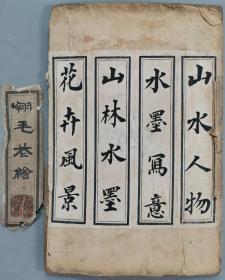 山水人物
水墨寫意
山林水墨
花卉風景
翎毛花繪